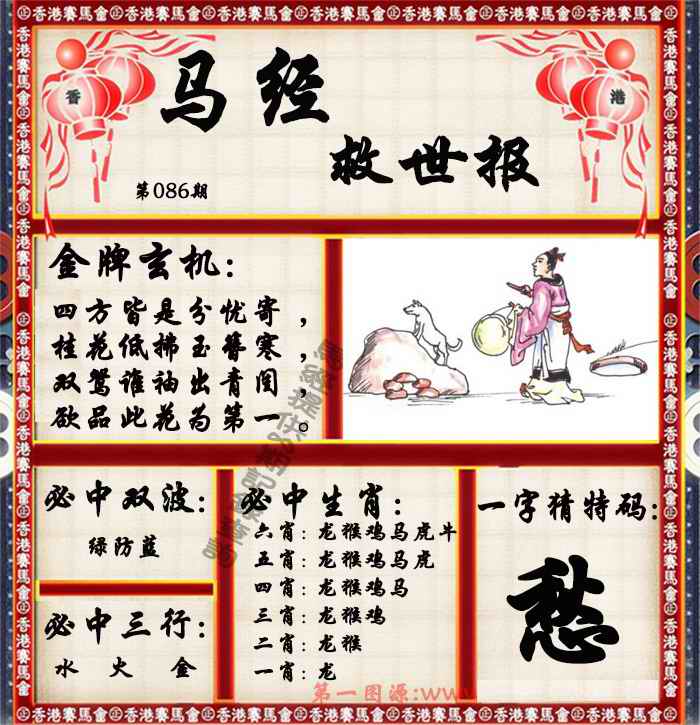 香港賽馬會
香
港
马经
救世报
第086期
金牌玄机：
四方皆是分忧寄，
桂花低拂玉簪寒，
双鸳谁袖出青闺，
欲品此花为第一。
必中双波：
绿防蓝
必中三行：
水 火 金
必中生肖：
六肖：龙猴鸡马虎牛
五肖：龙猴鸡马虎
四肖：龙猴鸡马
三肖：龙猴鸡
二肖：龙猴
一肖：龙
一字猜特码：
愁
第一图源：www